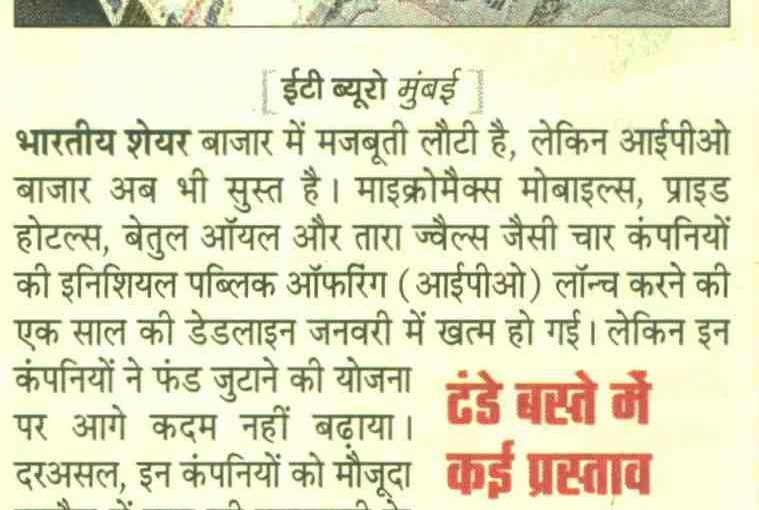 [ ईटी ब्यूरो मुंबई ]
भारतीय शेयर बाजार में मजबूती लौटी है, लेकिन आईपीओ
बाजार अब भी सुस्त है। माइक्रोमैक्स मोबाइल्स, प्राइड
होटल्स, बेतुल ऑयल और तारा ज्वैल्स जैसी चार कंपनियों
की इनिशियल पब्लिक ऑफरिंग (आईपीओ) लॉन्च करने की
एक साल की डेडलाइन जनवरी में खत्म हो गई। लेकिन इन
कंपनियों ने फंड जुटाने की योजना
पर आगे कदम नहीं बढ़ाया।
दरअसल, इन कंपनियों को मौजूदा
टंडे बस्ते में
कई प्रस्ताव